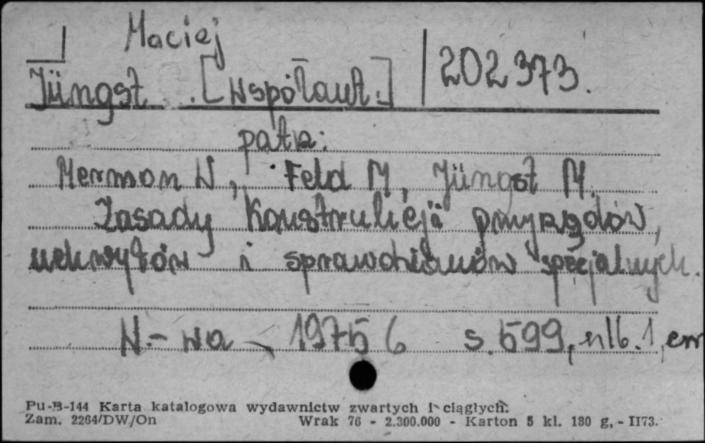 Maciej
Jüngst [współaut.] 202373.
patrz:
Hermon W, Feld M, Jüngst M.
Zasady Konstrukcji przyrządów,
uchwytów i sprawdzianów specjalnych.
W-wa 1975 6 s. 599, nlb. 1, err
Pu-B-144 Karta katalogowa wydawnictw zwartych i ciągłych.
Zam. 2264/DW/On Wrak 76 - 2.300.000 - Karton 5 kl. 180 g, - II73.